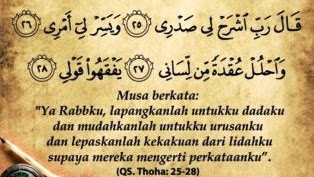 قَالَ رَبِّ اشْرَحْ لِي صَدْرِي ﴿٢٥﴾ وَيَسِّرْ لِي أَمْرِي ﴿٢٦﴾
وَاحْلُلْ عُقْدَةً مِّن لِّسَانِي ﴿٢٧﴾ يَفْقَهُوا قَوْلِي ﴿٢٨﴾
Musa berkata:
"Ya Rabbku, lapangkanlah untukku dadaku
dan mudahkanlah untukku urusanku
dan lepaskanlah kekakuan dari lidahku
supaya mereka mengerti perkataanku".
(QS. Thoha: 25-28)